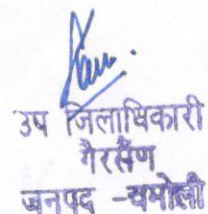 उप जिलाधिकारी
गैरसैंण
जनपद -चमोली